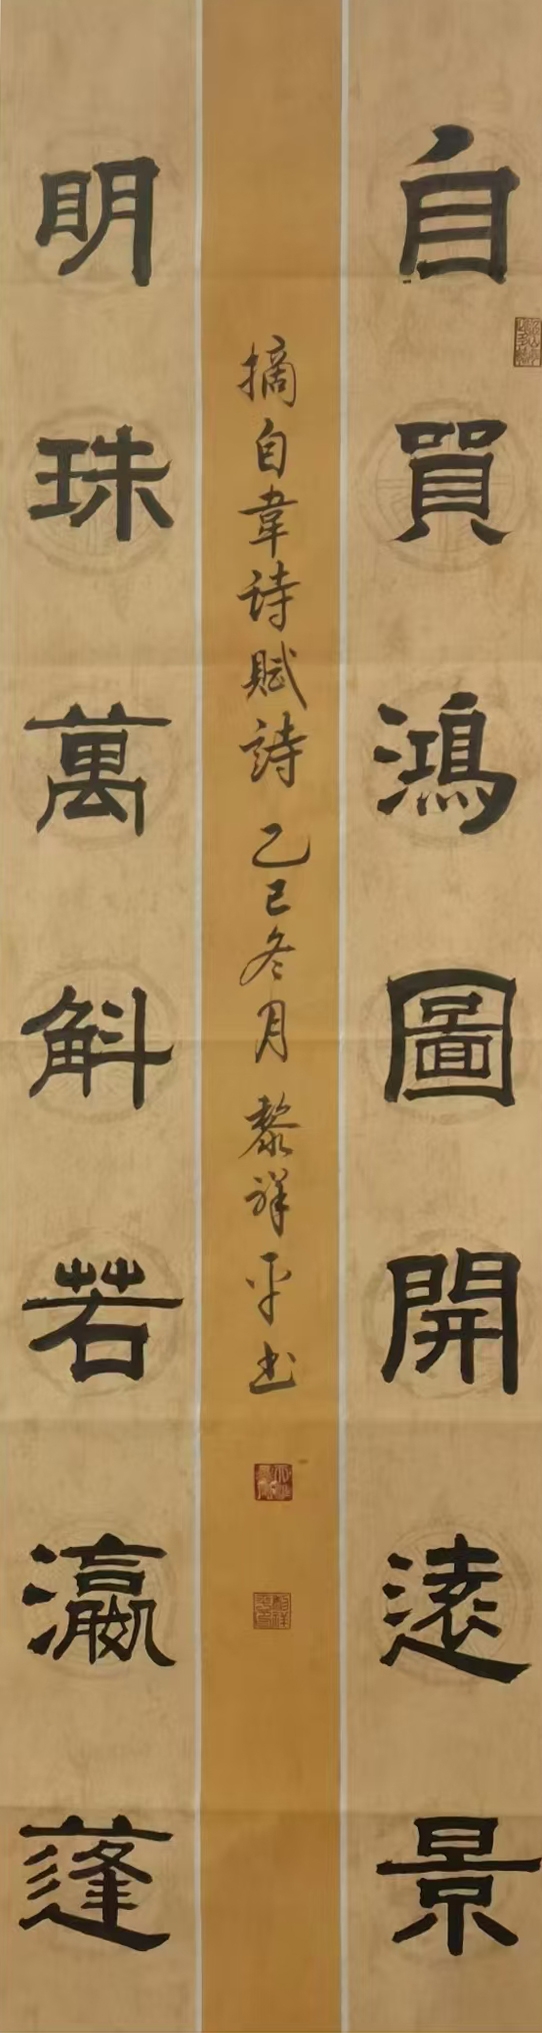 自買鴻圖開遠景
明珠萬斛若瀛蓬
摘自韋诗賦詩 乙巳冬月 黎祥平书